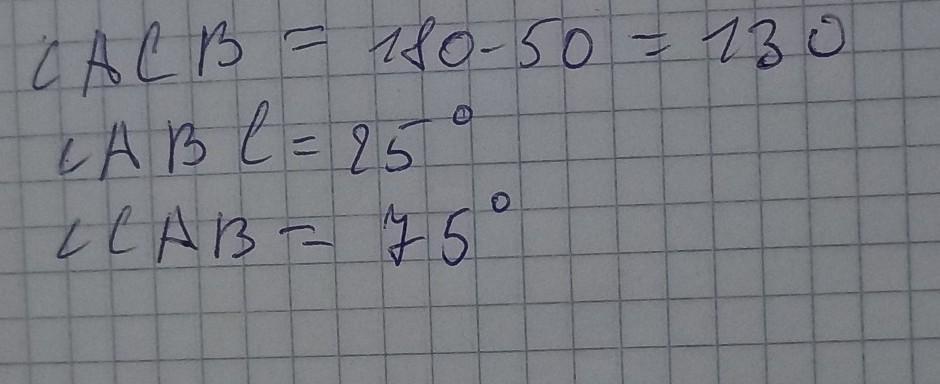 ∠ACB = 180-50 = 130
∠ABC = 25°
∠CAB = 75°